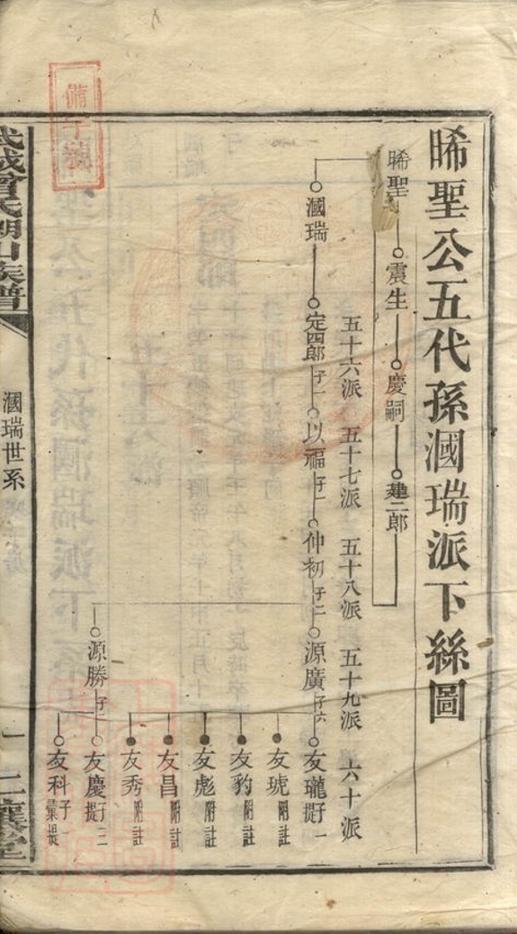 晞聖公五代孫漍瑞派下絲圖
晞聖 震生 慶嗣 建二郎
五十六派 五十七派 五十八派 五十九派 六十派
漍瑞 定四郎 子一 以福 子一 仲初 子二 源廣 子六 友瓏 子一 提
友琥 附註
友豹 附註
友彪 附註
友昌 附註
友秀 附註
源勝 子二 友慶 子二 提
友科 子一 彙提
武城曾氏 山族譜
漍瑞世系
一
備字號